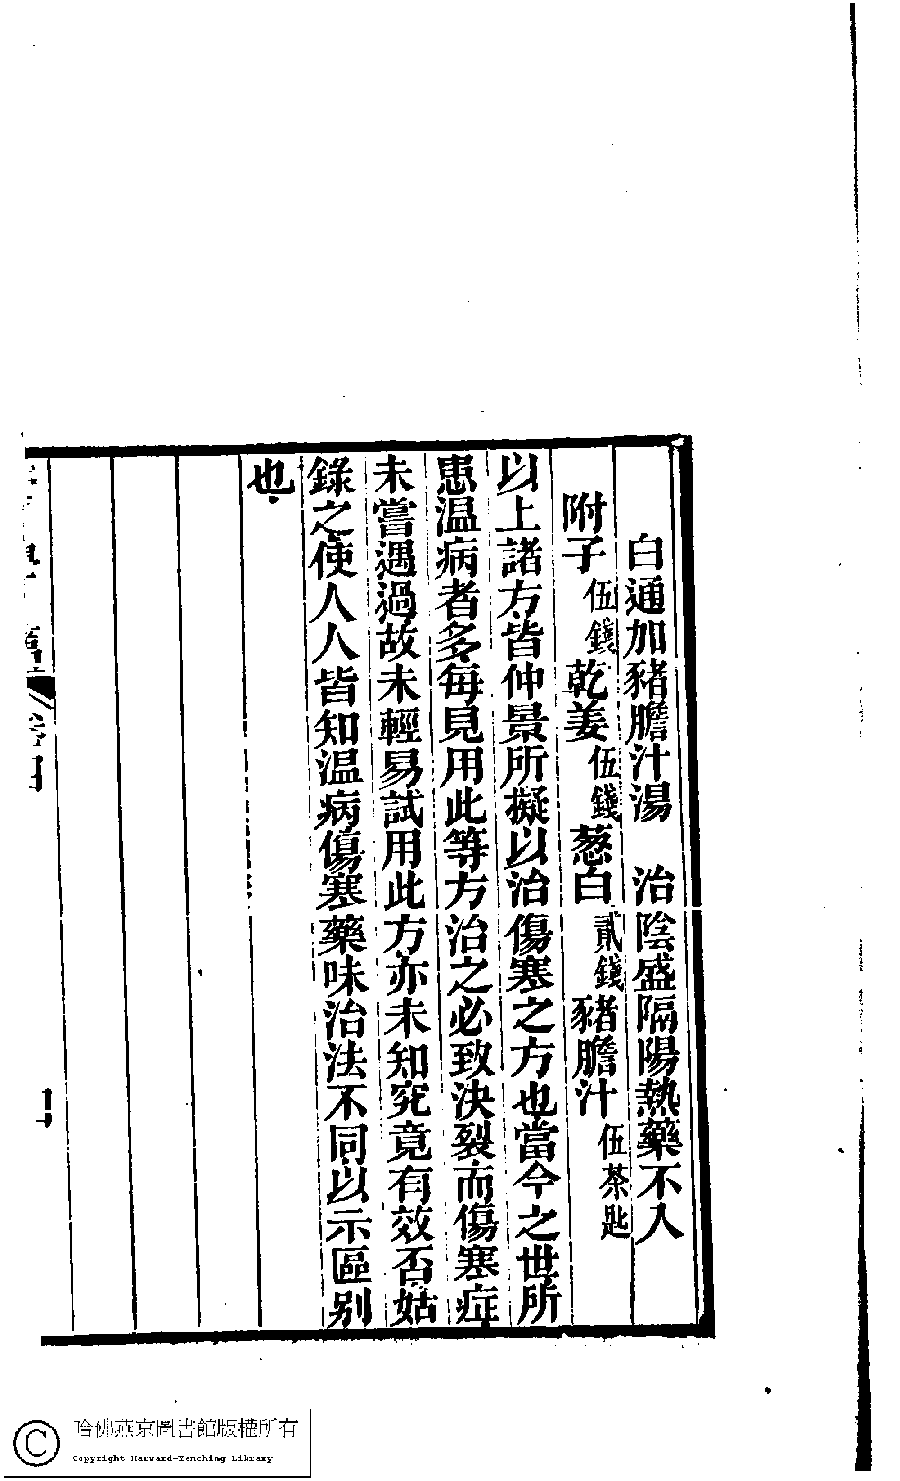 白通加豬膽汁湯　治陰盛隔陽熱藥不入
附子伍錢乾姜伍錢葱白貳錢豬膽汁伍茶匙
以上諸方皆仲景所擬以治傷寒之方也當今之世所
患温病者多每見用此等方治之必致決裂而傷寒症
未嘗遇過故未輕易試用此方亦未知究竟有效否姑
錄之使人人皆知温病傷寒藥味治法不同以示區别
也
哈佛燕京圖書館版權所有
Copyright Harvard-Yenching Library